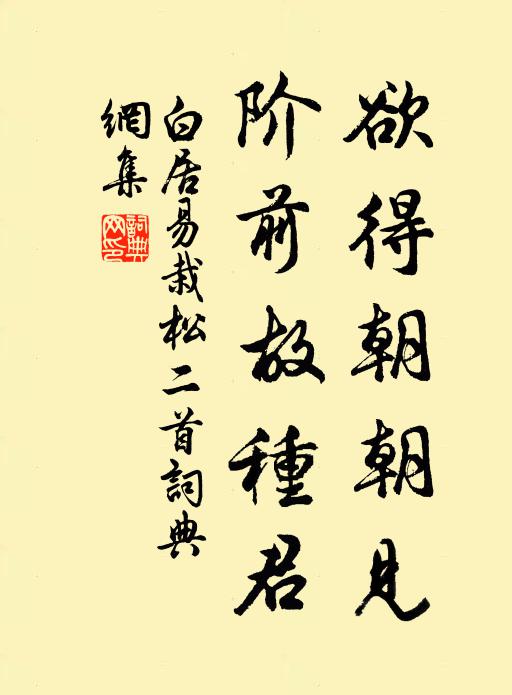 欲得朝朝見
阶前故種君
白居易栽松二首詞典
網集
詞典网印